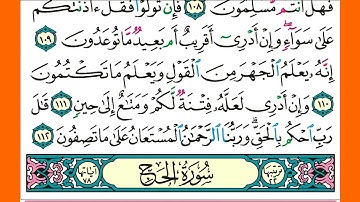 فَهَلْ أَنتُم مُّسْلِمُونَ ١٠٨ فَإِن تَوَلَّوْا۟ فَقُلْ ءَاذَنتُكُمْ
عَلَىٰ سَوَآءٍ ۖ وَإِنْ أَدْرِىٓ أَقَرِيبٌ أَم بَعِيدٌ مَّا تُوعَدُونَ ١٠٩
إِنَّهُۥ يَعْلَمُ ٱلْجَهْرَ مِنَ ٱلْقَوْلِ وَيَعْلَمُ مَا تَكْتُمُونَ
١١٠ وَإِنْ أَدْرِى لَعَلَّهُۥ فِتْنَةٌ لَّكُمْ وَمَتَٰعٌ إِلَىٰ حِينٍ ١١١ قَٰلَ
رَبِّ ٱحْكُم بِٱلْحَقِّ ۗ وَرَبُّنَا ٱلرَّحْمَٰنُ ٱلْمُسْتَعَانُ عَلَىٰ مَا تَصِفُونَ ١١٢
ترتيبها ٢٢ سُورَةُ الحَجِّ آياتها ٧٨